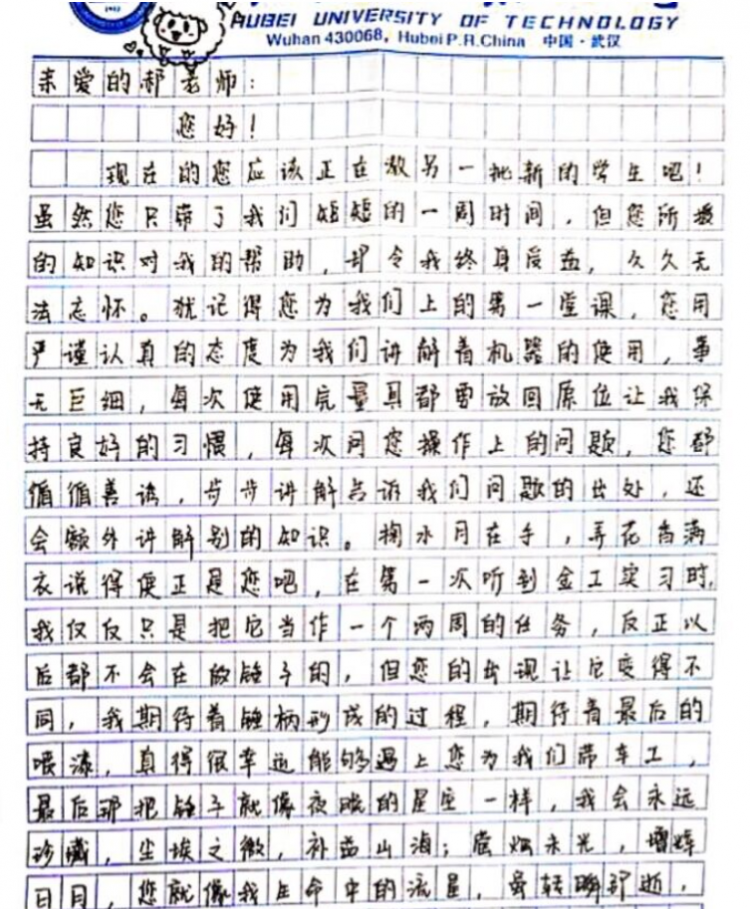 HUBEI UNIVERSITY OF TECHNOLOGY
Wuhan 430068, Hubei P.R.China 中国·武汉
亲爱的郝老师:
您好!
现在的您应该正在教另一批新的学生吧!
虽然您只带了我们短短的一周时间,但您所授
的知识对我的帮助,却令我终身受益,久久无
法忘怀。犹记得您为我们上的第一堂课,您用
严谨认真的态度为我们讲解着机器的使用,事
无巨细,每次使用完量具都要放回原位让我保
持良好的习惯,每次问您操作上的问题,您都
循循善诱,步步讲解告诉我们问题的出处,还
会额外讲解别的知识。掬水月在手,弄花香满
衣说得便正是您吧,在第一次听到金工实习时,
我仅仅只是把它当作一个两周的任务,反正以
后都不会在做锤子的,但您的出现让它变得不
同,我期待着锤柄形成的过程,期待着最后的
喷漆,真得很幸运能够遇上您为我们带车工,
最后那把锤子就像夜晚的星空一样,我会永远
珍藏,尘埃之微,补益山海;萤烛末光,增辉
日月,您就像我生命中的流星,虽转瞬即逝,